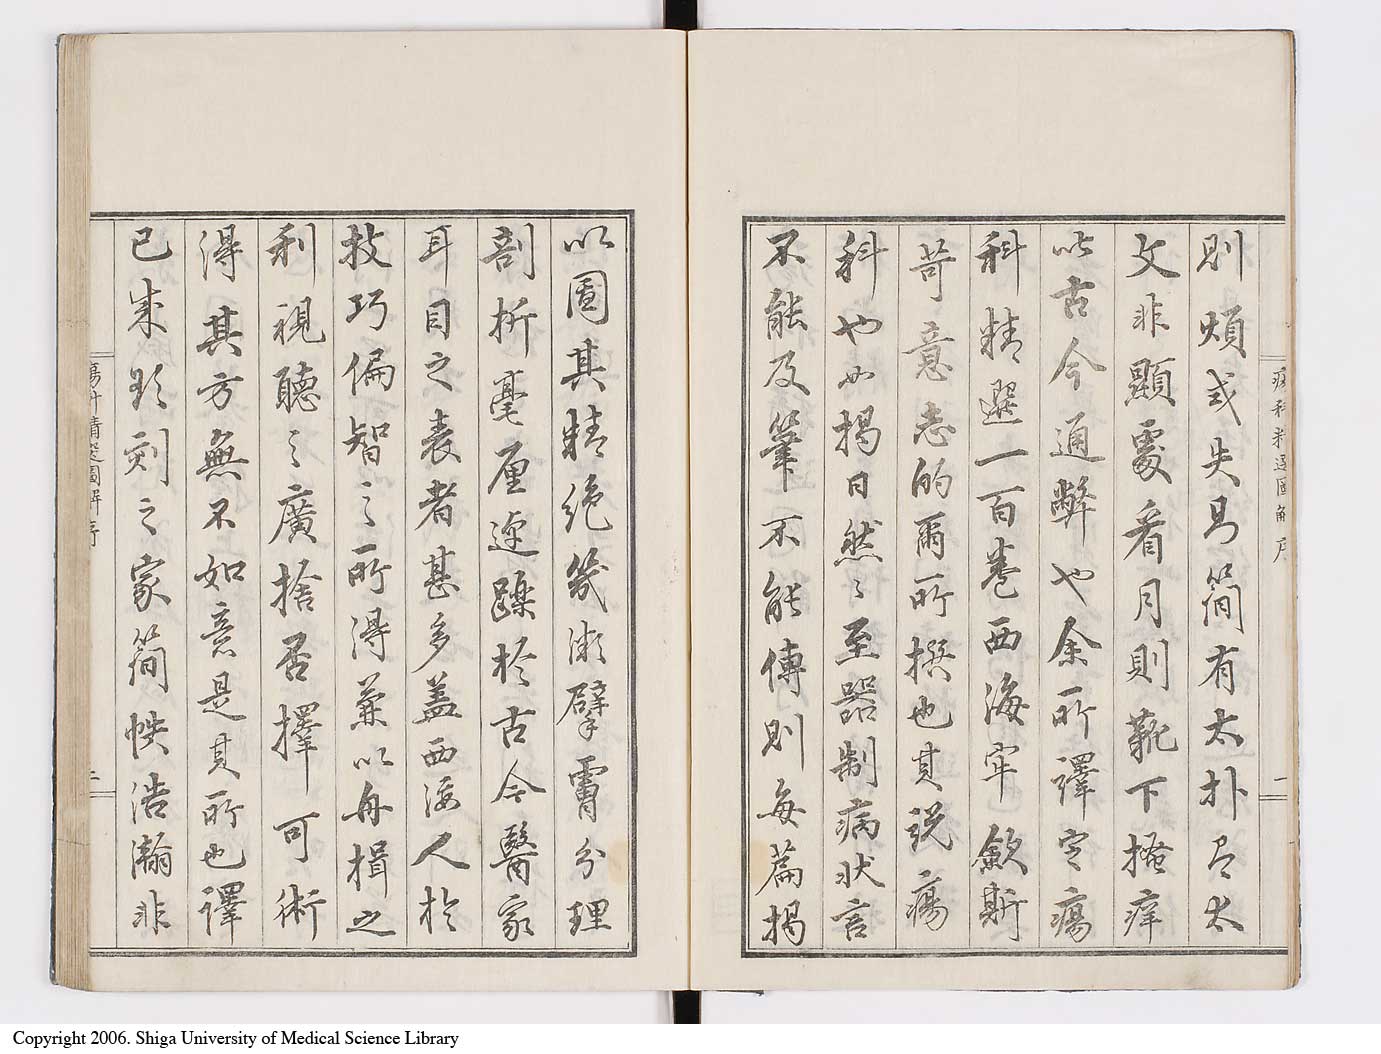 則煩或失易簡有太朴而太
文非顯霧看月則靴下搔痒
此古今通弊也余所譯定瘍
科精選一百卷西海牢歛斯
苛意志的爾所撰也其說瘍
科也如揭日然々至器制病狀言
不能及筆不能傳則每篇揭
瘍科精選圖解序
一
以圖其精絕幾微擘膚分理
剖折毫厘逴躒於古今醫家
耳目之表者甚多蓋西洋人於
技巧偏智之所得兼以舟楫之
利視聽之廣捨否擇可術
得其方無不如意是其所也譯
已成欲刻之家簡帙浩瀚非
瘍科精選圖解序
二
Copyright 2006. Shiga University of Medical Science Library